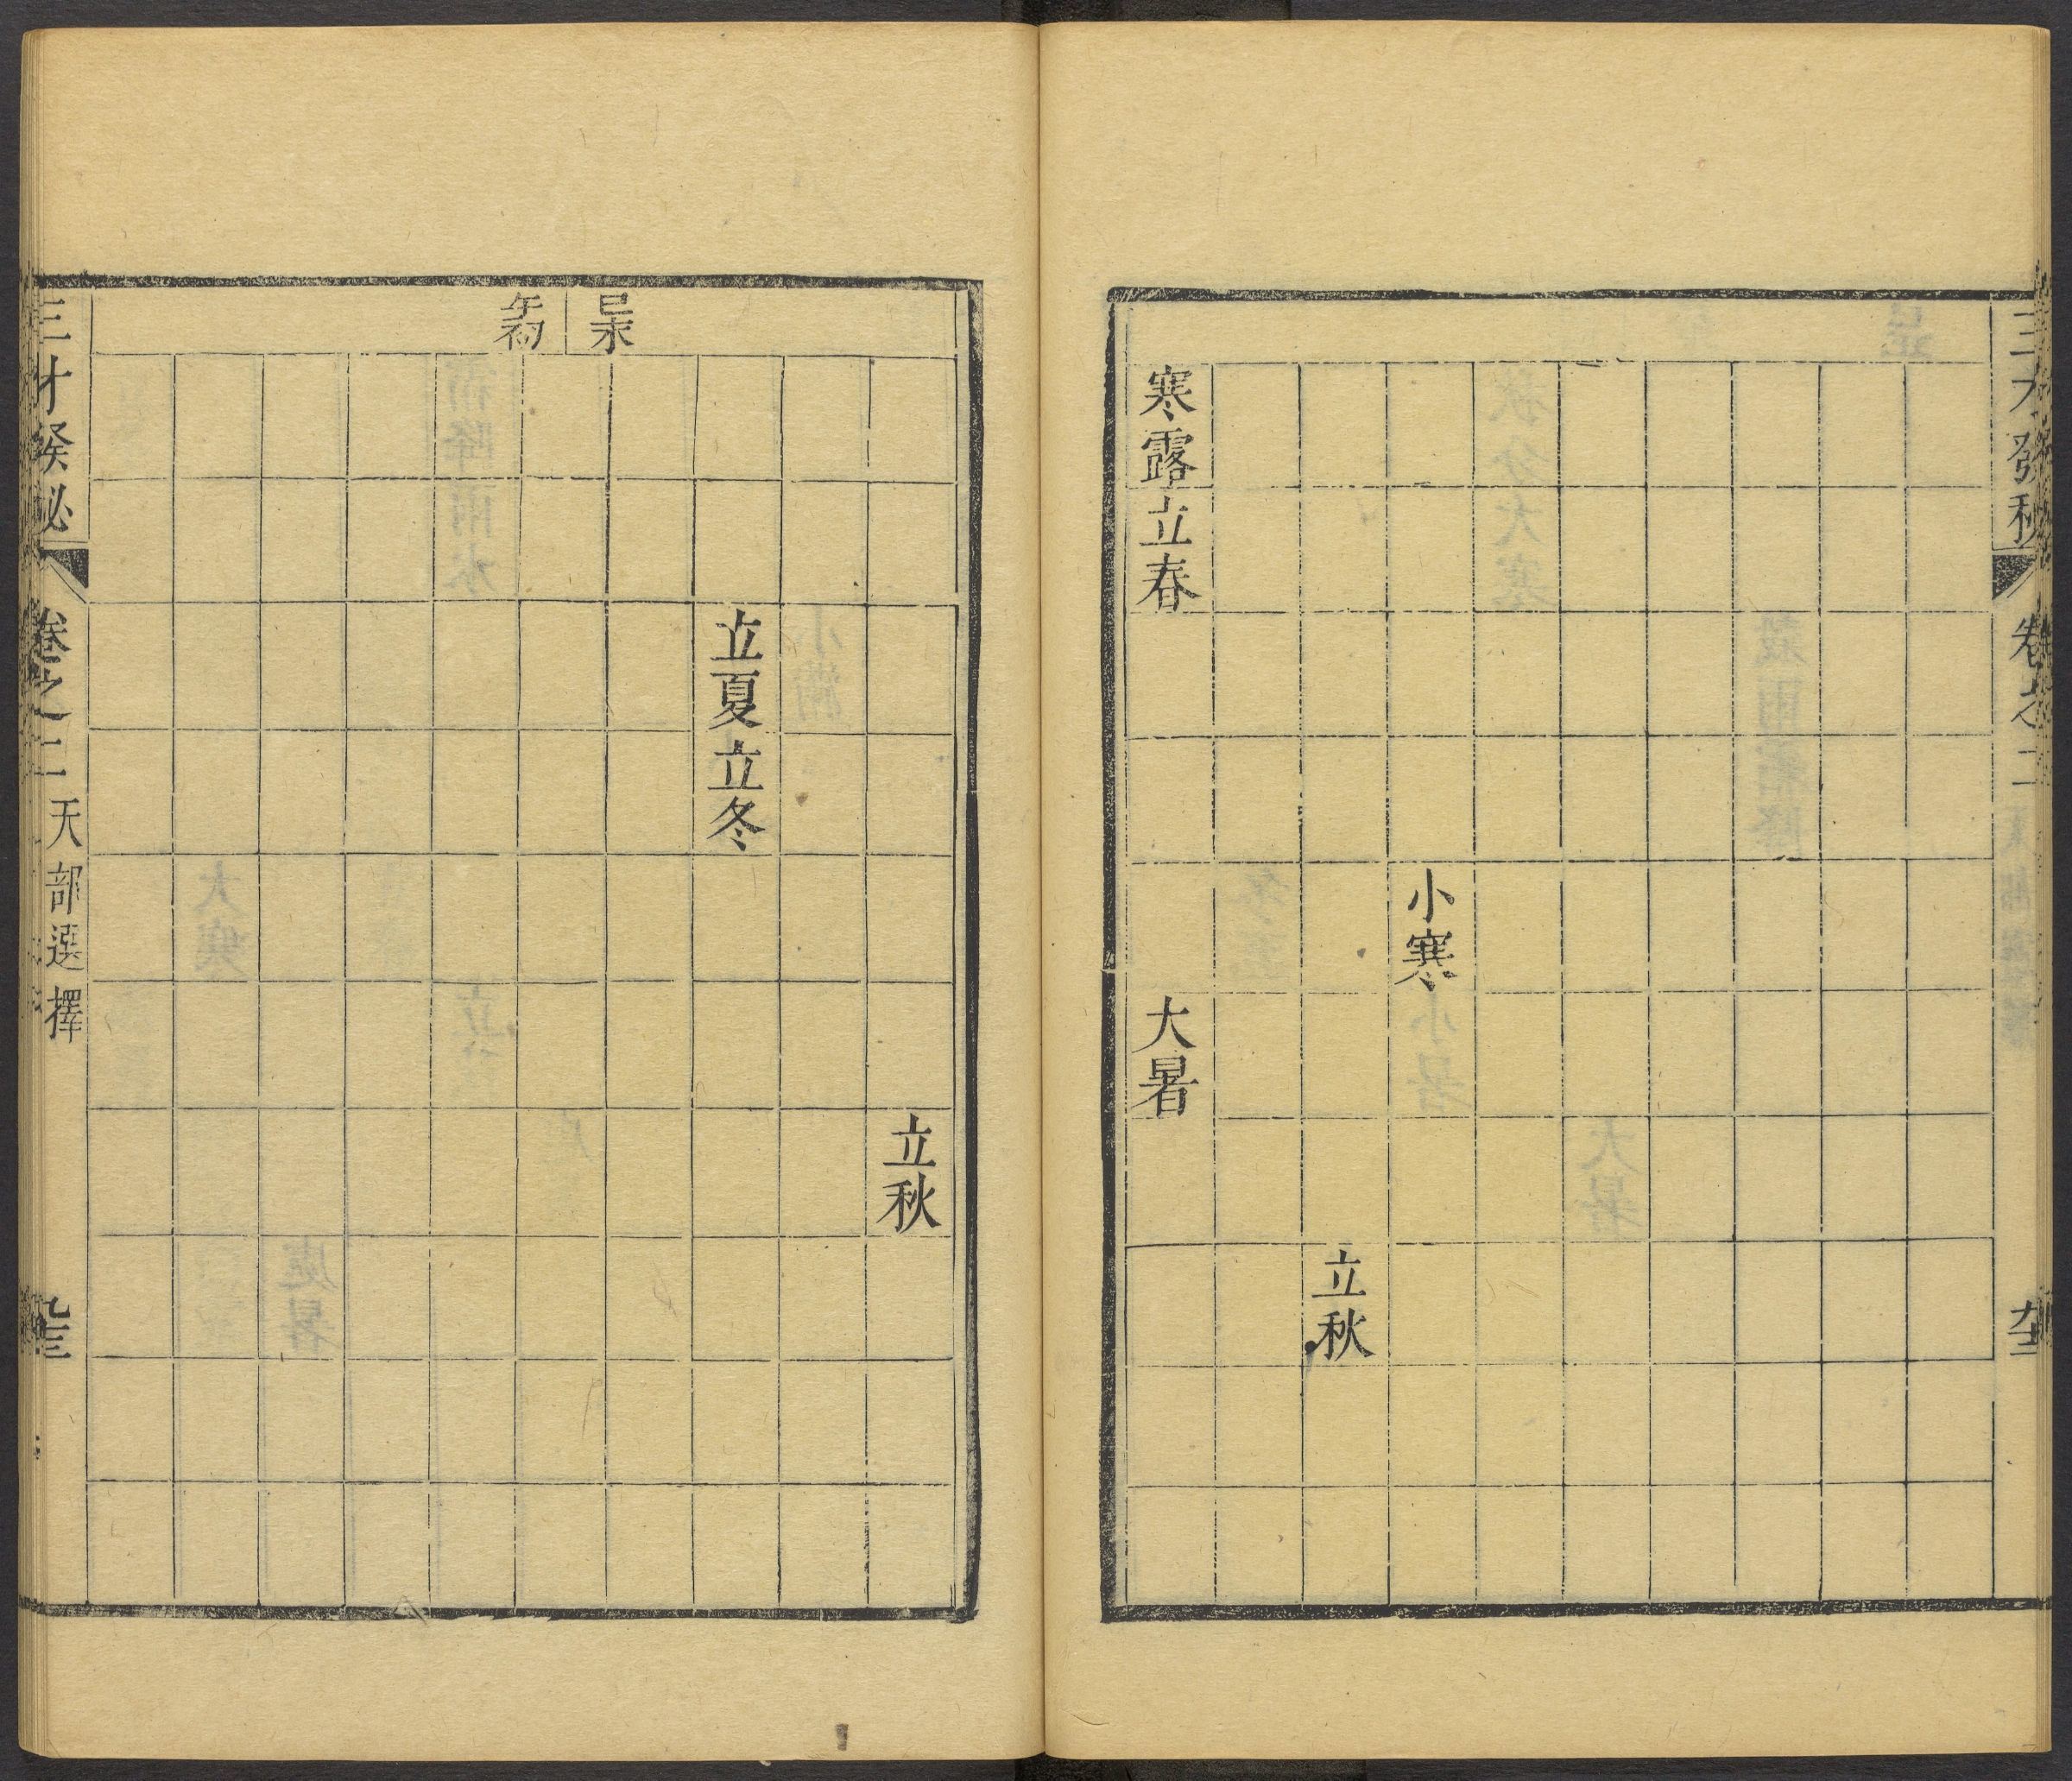 三才發秘
卷之二
小寒
立秋
寒露立春
大暑
立秋
立夏立冬
三才發秘
卷之二
天部選擇
九三